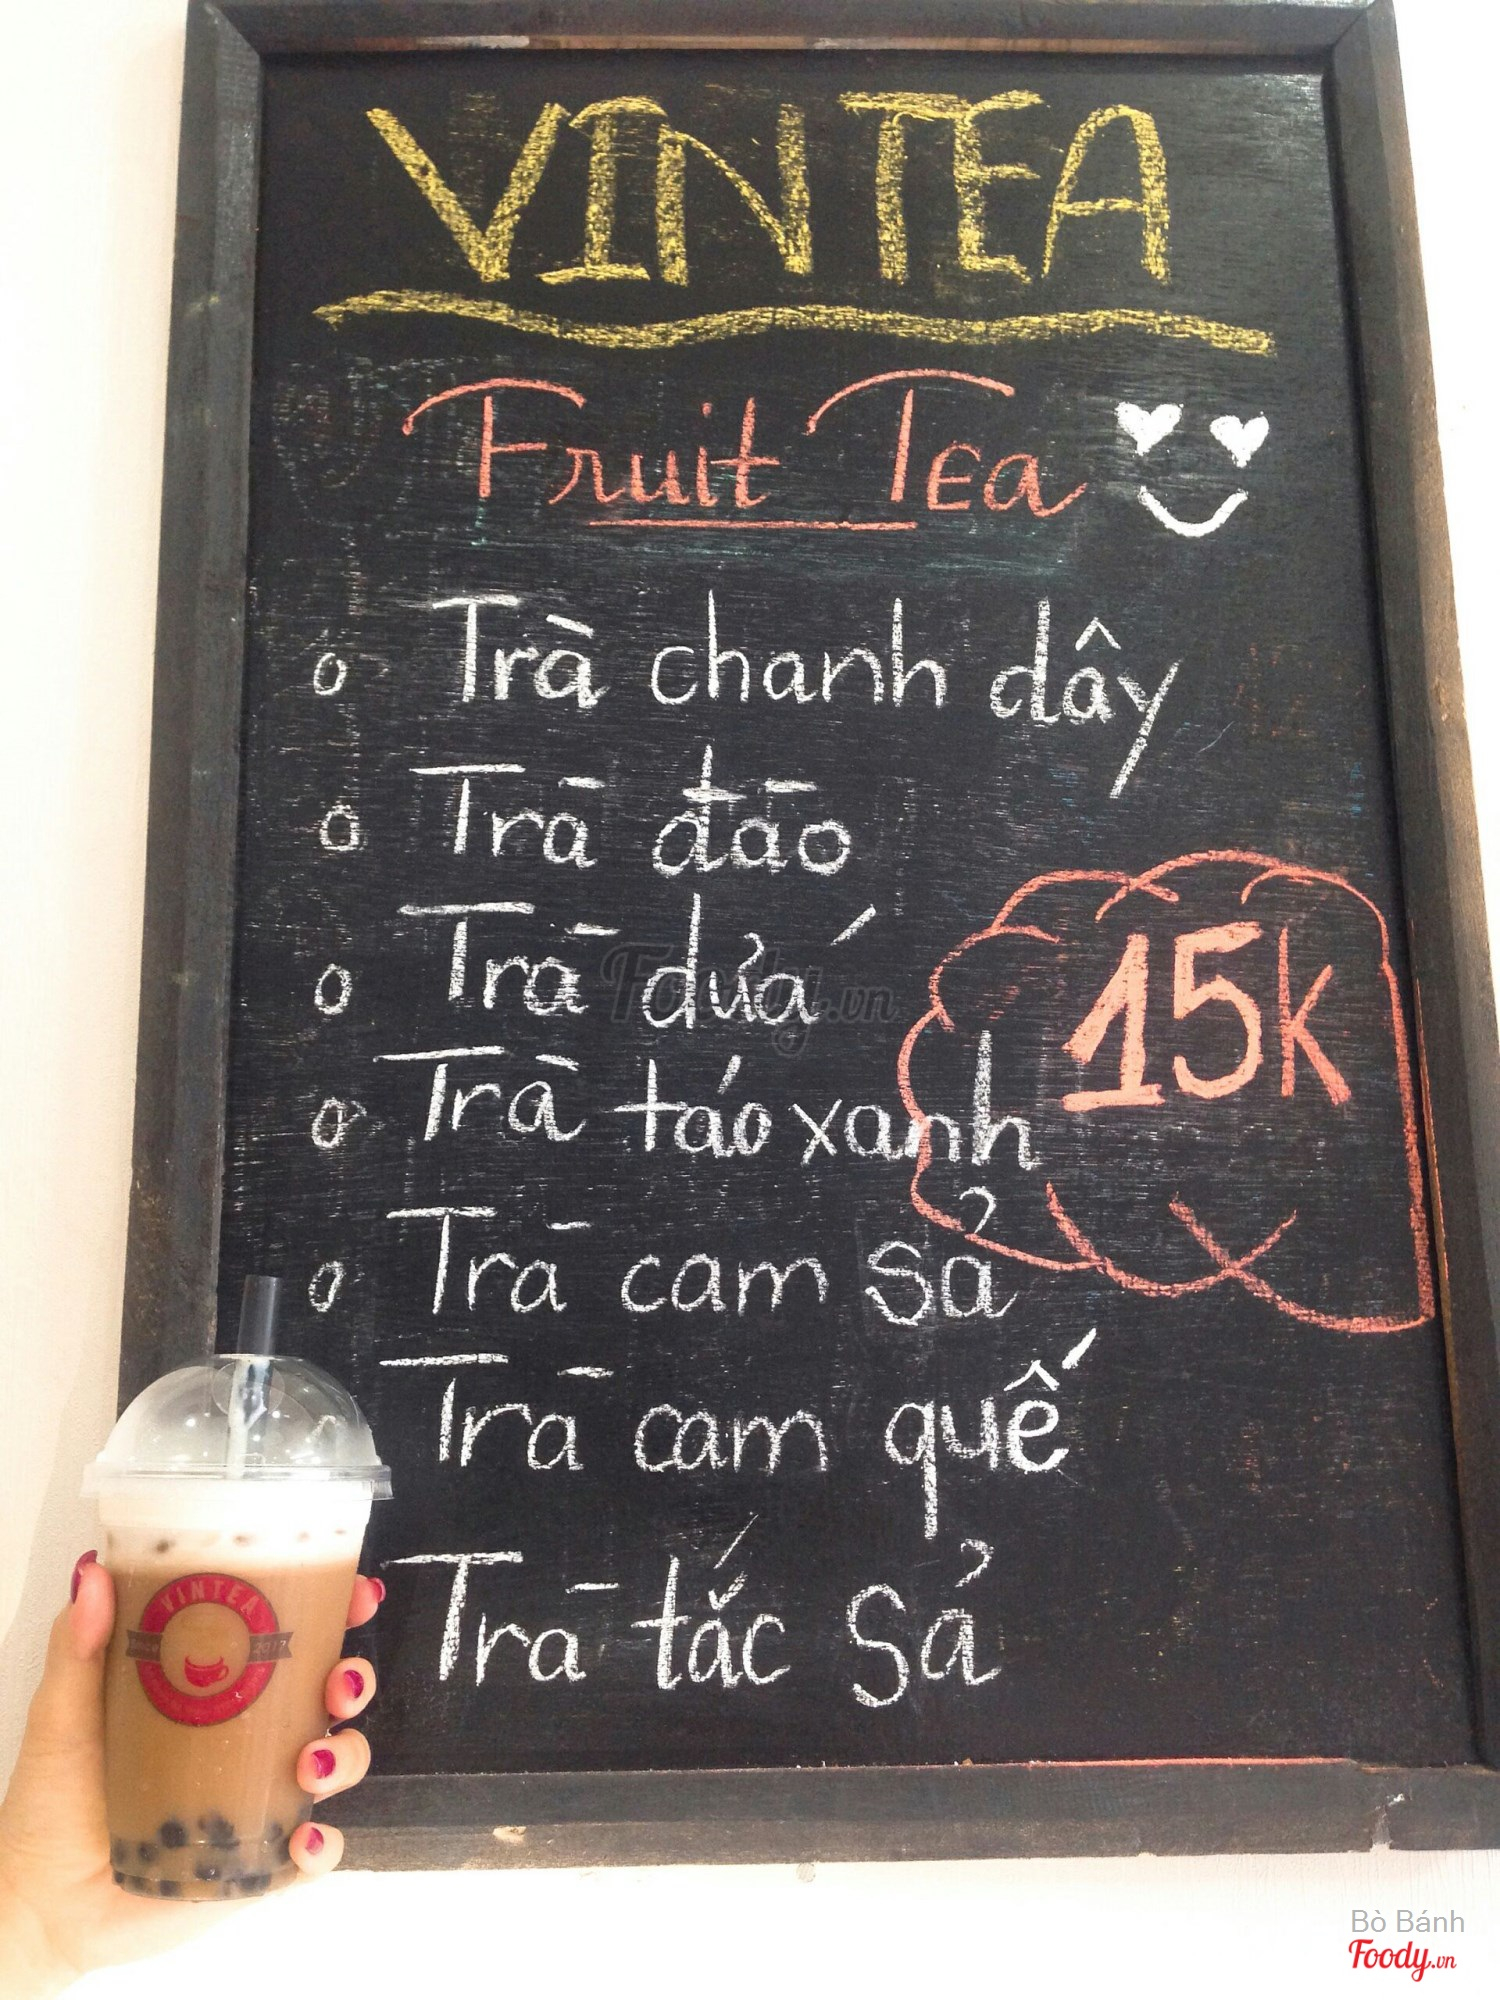 VINTEA
Fruit Tea
o Trà chanh dây
o Trà đào
o Trà dứa
o Trà táo xanh
15k
o Trà cam sả
Trà cam quế
Trà tắc sả
VINTEA
Since 2017
Foody.vn
Bò Bánh
Foody.vn